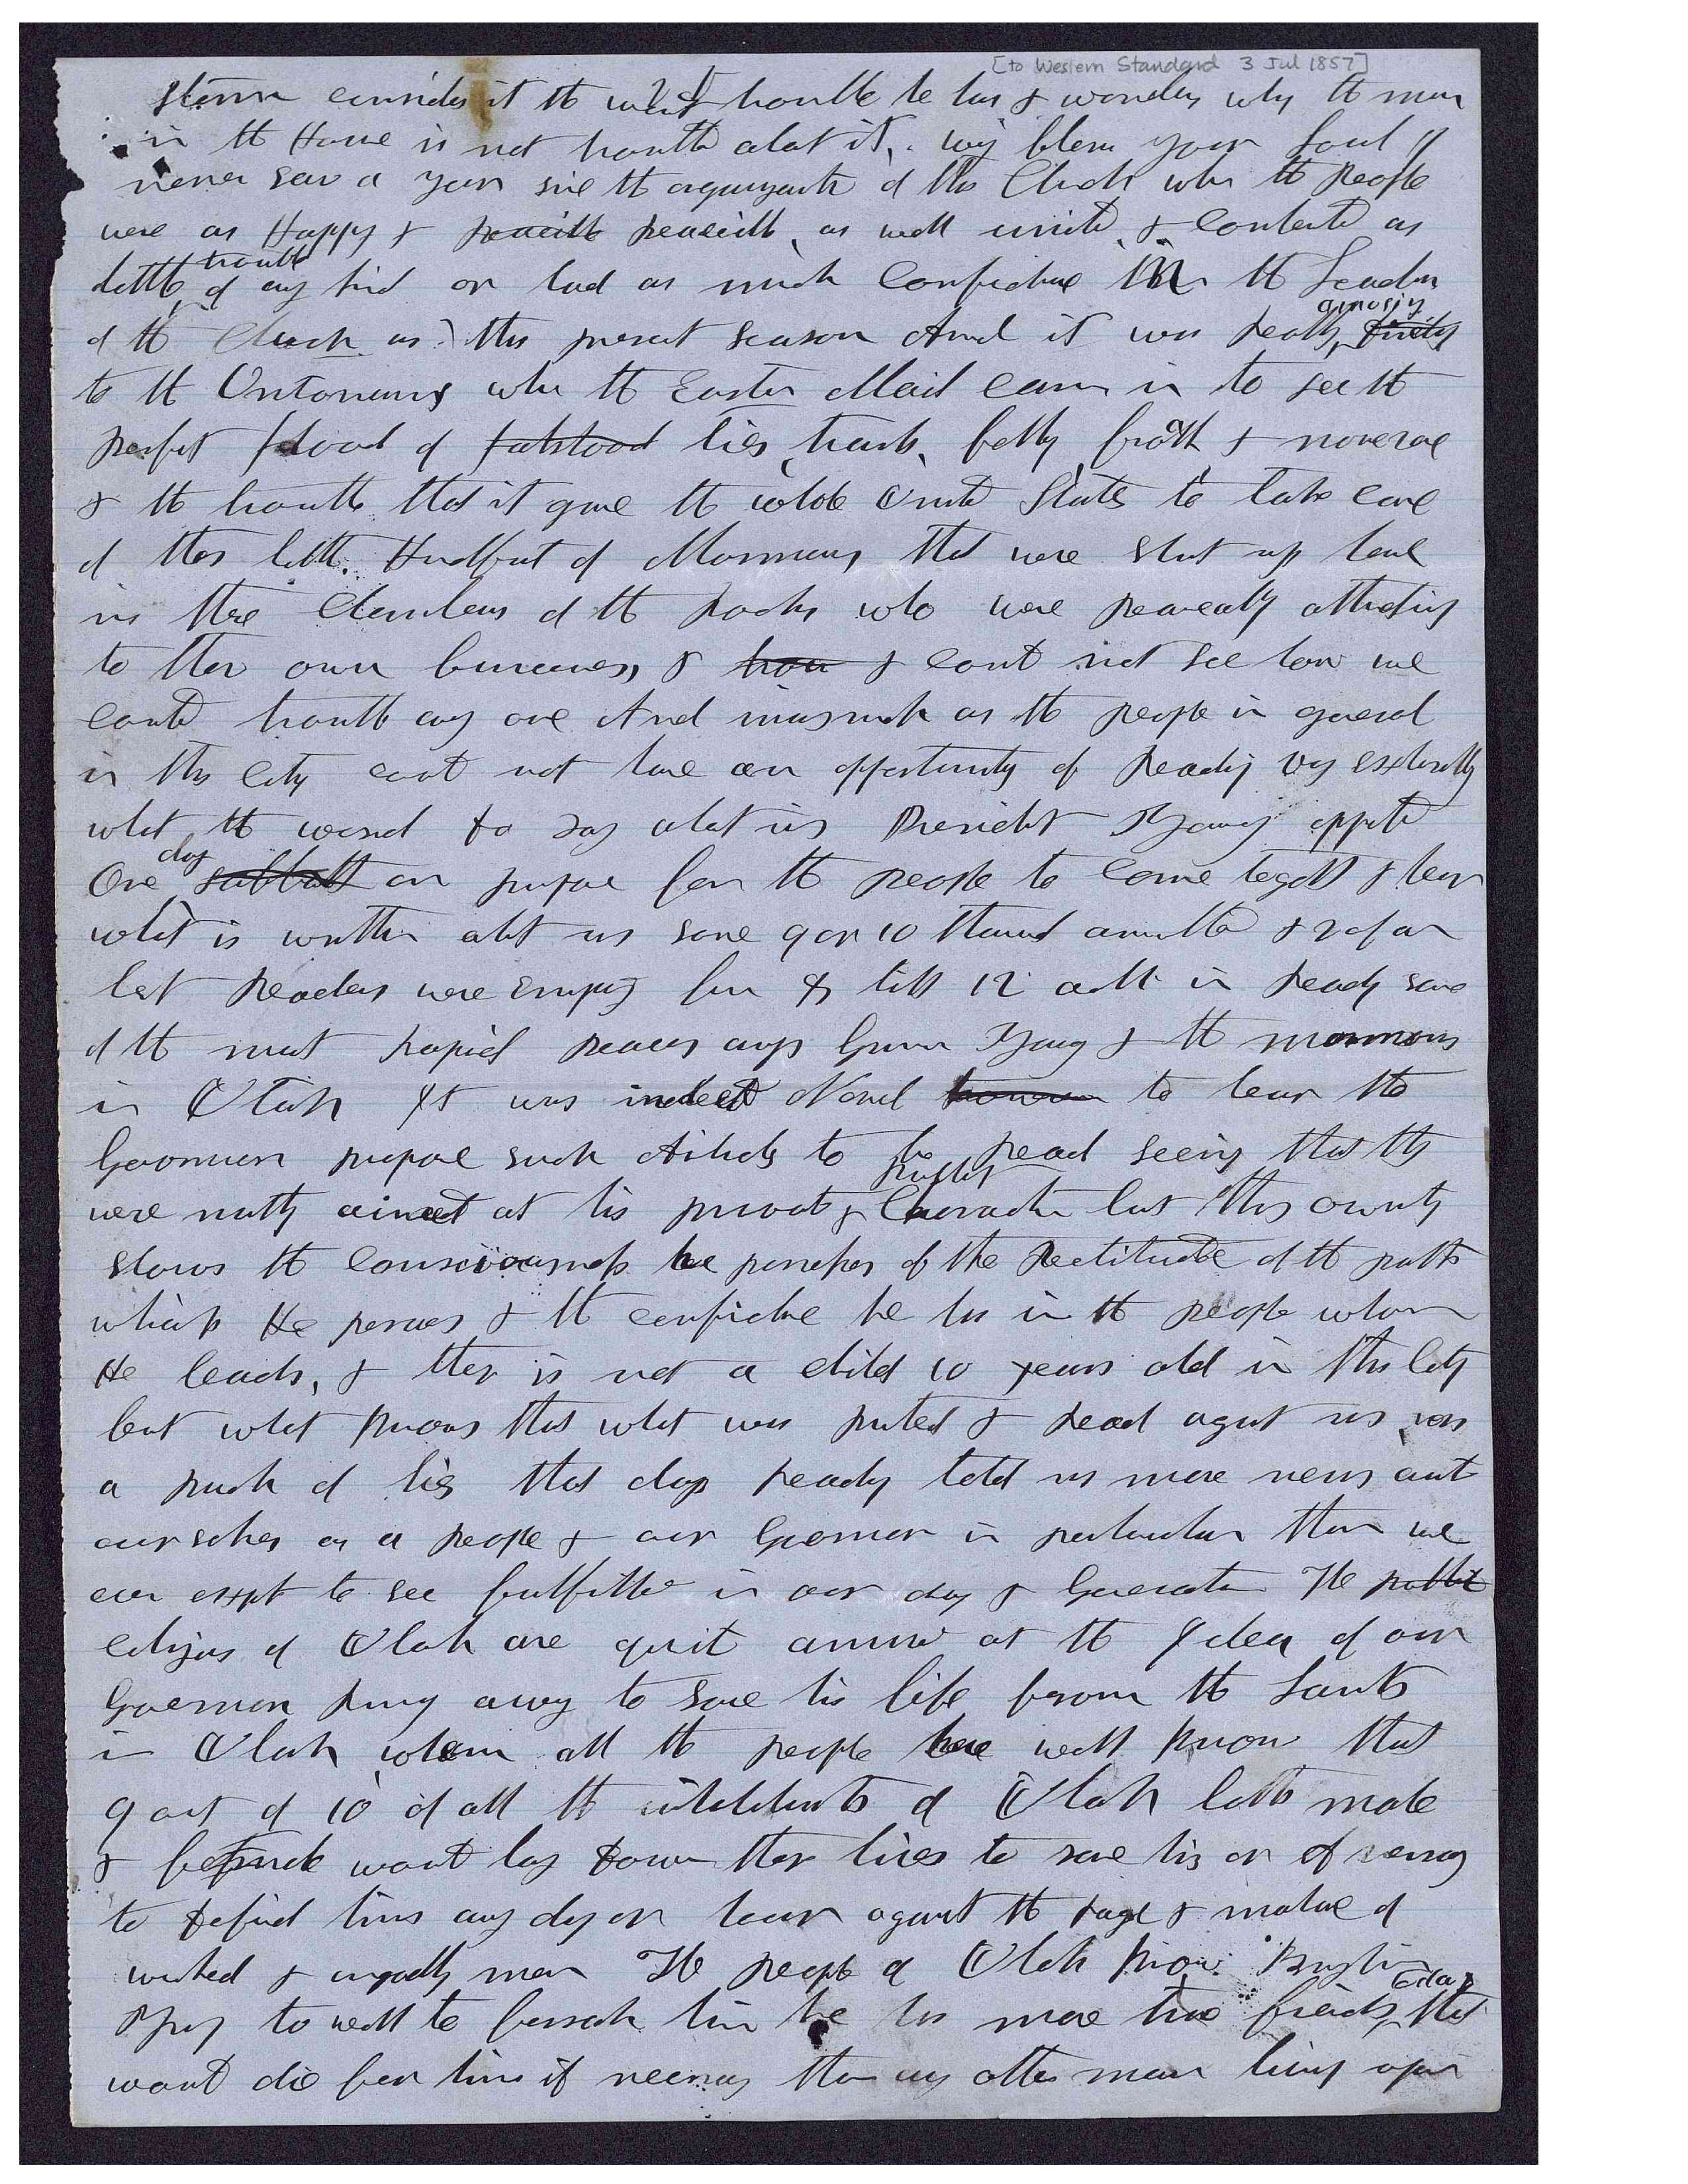 [to Western Standard 3 Jul 1857]
storm considers it the worst trouble he has & wonders why the man
in the House is not troubled about it, why bless your soul I
never saw a year since the organization of this Church when the People
were as Happy & peaceable peaceable, as well united, & contented as
little trouble of any kind or had as much Confidence in the Leaders
of the Church as this present season And it was really amusing
to the Utonians when the Eastern Mail came in to see the
perfect flood of falshood lies, trash, folly, froth & nonsense
& the trouble that it gave the whole United States to take care
of this little Handfull of Mormons that were shut up here
in the Chambers of the Rocks who were peaceably attending
to their own buisness, & how I could not see how we
could trouble any one And inasmuch as the people in general
in this City could not have an opportunity of Reading very extensively
what the world to say about us President Young appointed
One day sabbath on purpose for the people to come together & hear
what is written about us some 9 or 10 thousand assembled & 2 of our
best Readers were employed from till 12 oclk in Reading some
of the most rapid pieces against Govr Young & the mormons
in Utah It was indeed Novel however to hear the
Governor propose such Articles to be read seeing that they
were mostly aimed at his private & public Character but this ownly
shows the consciousness he possesses of the Rectitude of the path
which He persues & the confidence he has in the people whom
He leads, & ther is not a child 10 years old in this City
but what knows that what was printed & Read against us was
a pack of lies that days reading told us more news about
ourselves as a people & our Governor in particular than we
ever expect to see fulfilled in our day & Generation The public
citizens of Utah are quit amused at the Idea of our
Governor runing away to save his life from the Saints
in Utah when all the people here well know that
9 out of 10 of all the inhabitants of Utah both male
& female would lay down ther lives to save his or if necessary
to defend him any day or hour against the rage & malice of
wicked & ungodly men The people of Utah know Brigham
Young to well to forsake him he has more true friends to day that
would die for him if necessary than any other man living upon